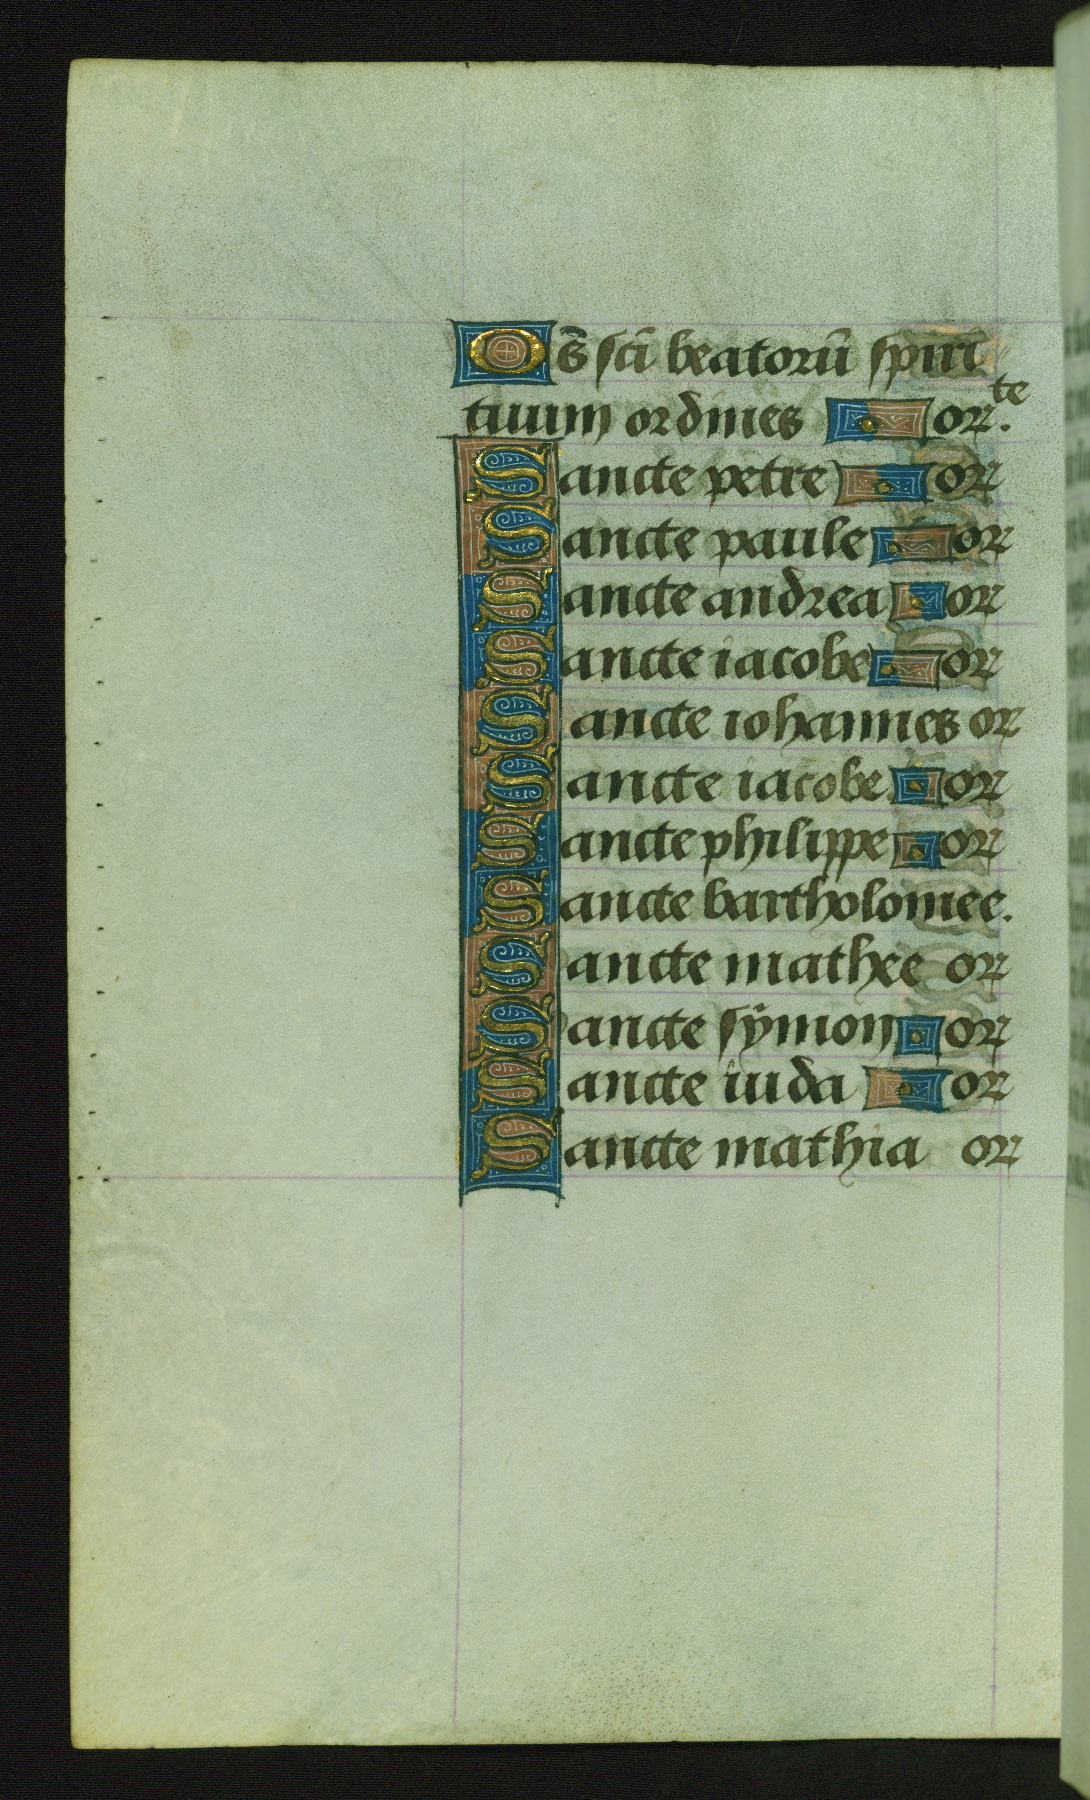 Oēs sc̄i beatorū spiri
tuum ordines or.te
Sancte petre or
Sancte paule or
Sancte andrea or
Sancte iacobe or
Sancte iohannes or
Sancte iacobe or
Sancte philippe or
Sancte bartholomee.
Sancte mathee or
Sancte symon or
Sancte iuda or
Sancte mathia or